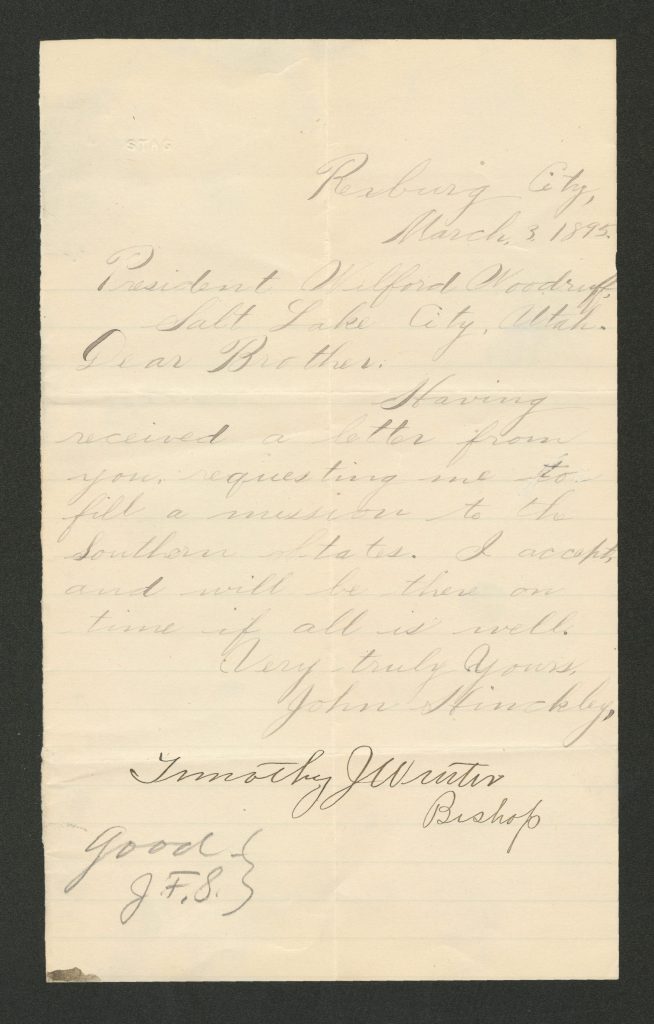 STAG
Rexburg City,
March, 3, 1895.
President Wilford Woodruff,
Salt Lake City, Utah.
Dear Brother.
Having
received a letter from
you, requesting me to
fill a mission to the
Southern States. I accept,
and will be there on
time if all is well.
Very truly Yours,
John Hinckley,
Timothy J Winter
Bishop
Good
J. F. S.